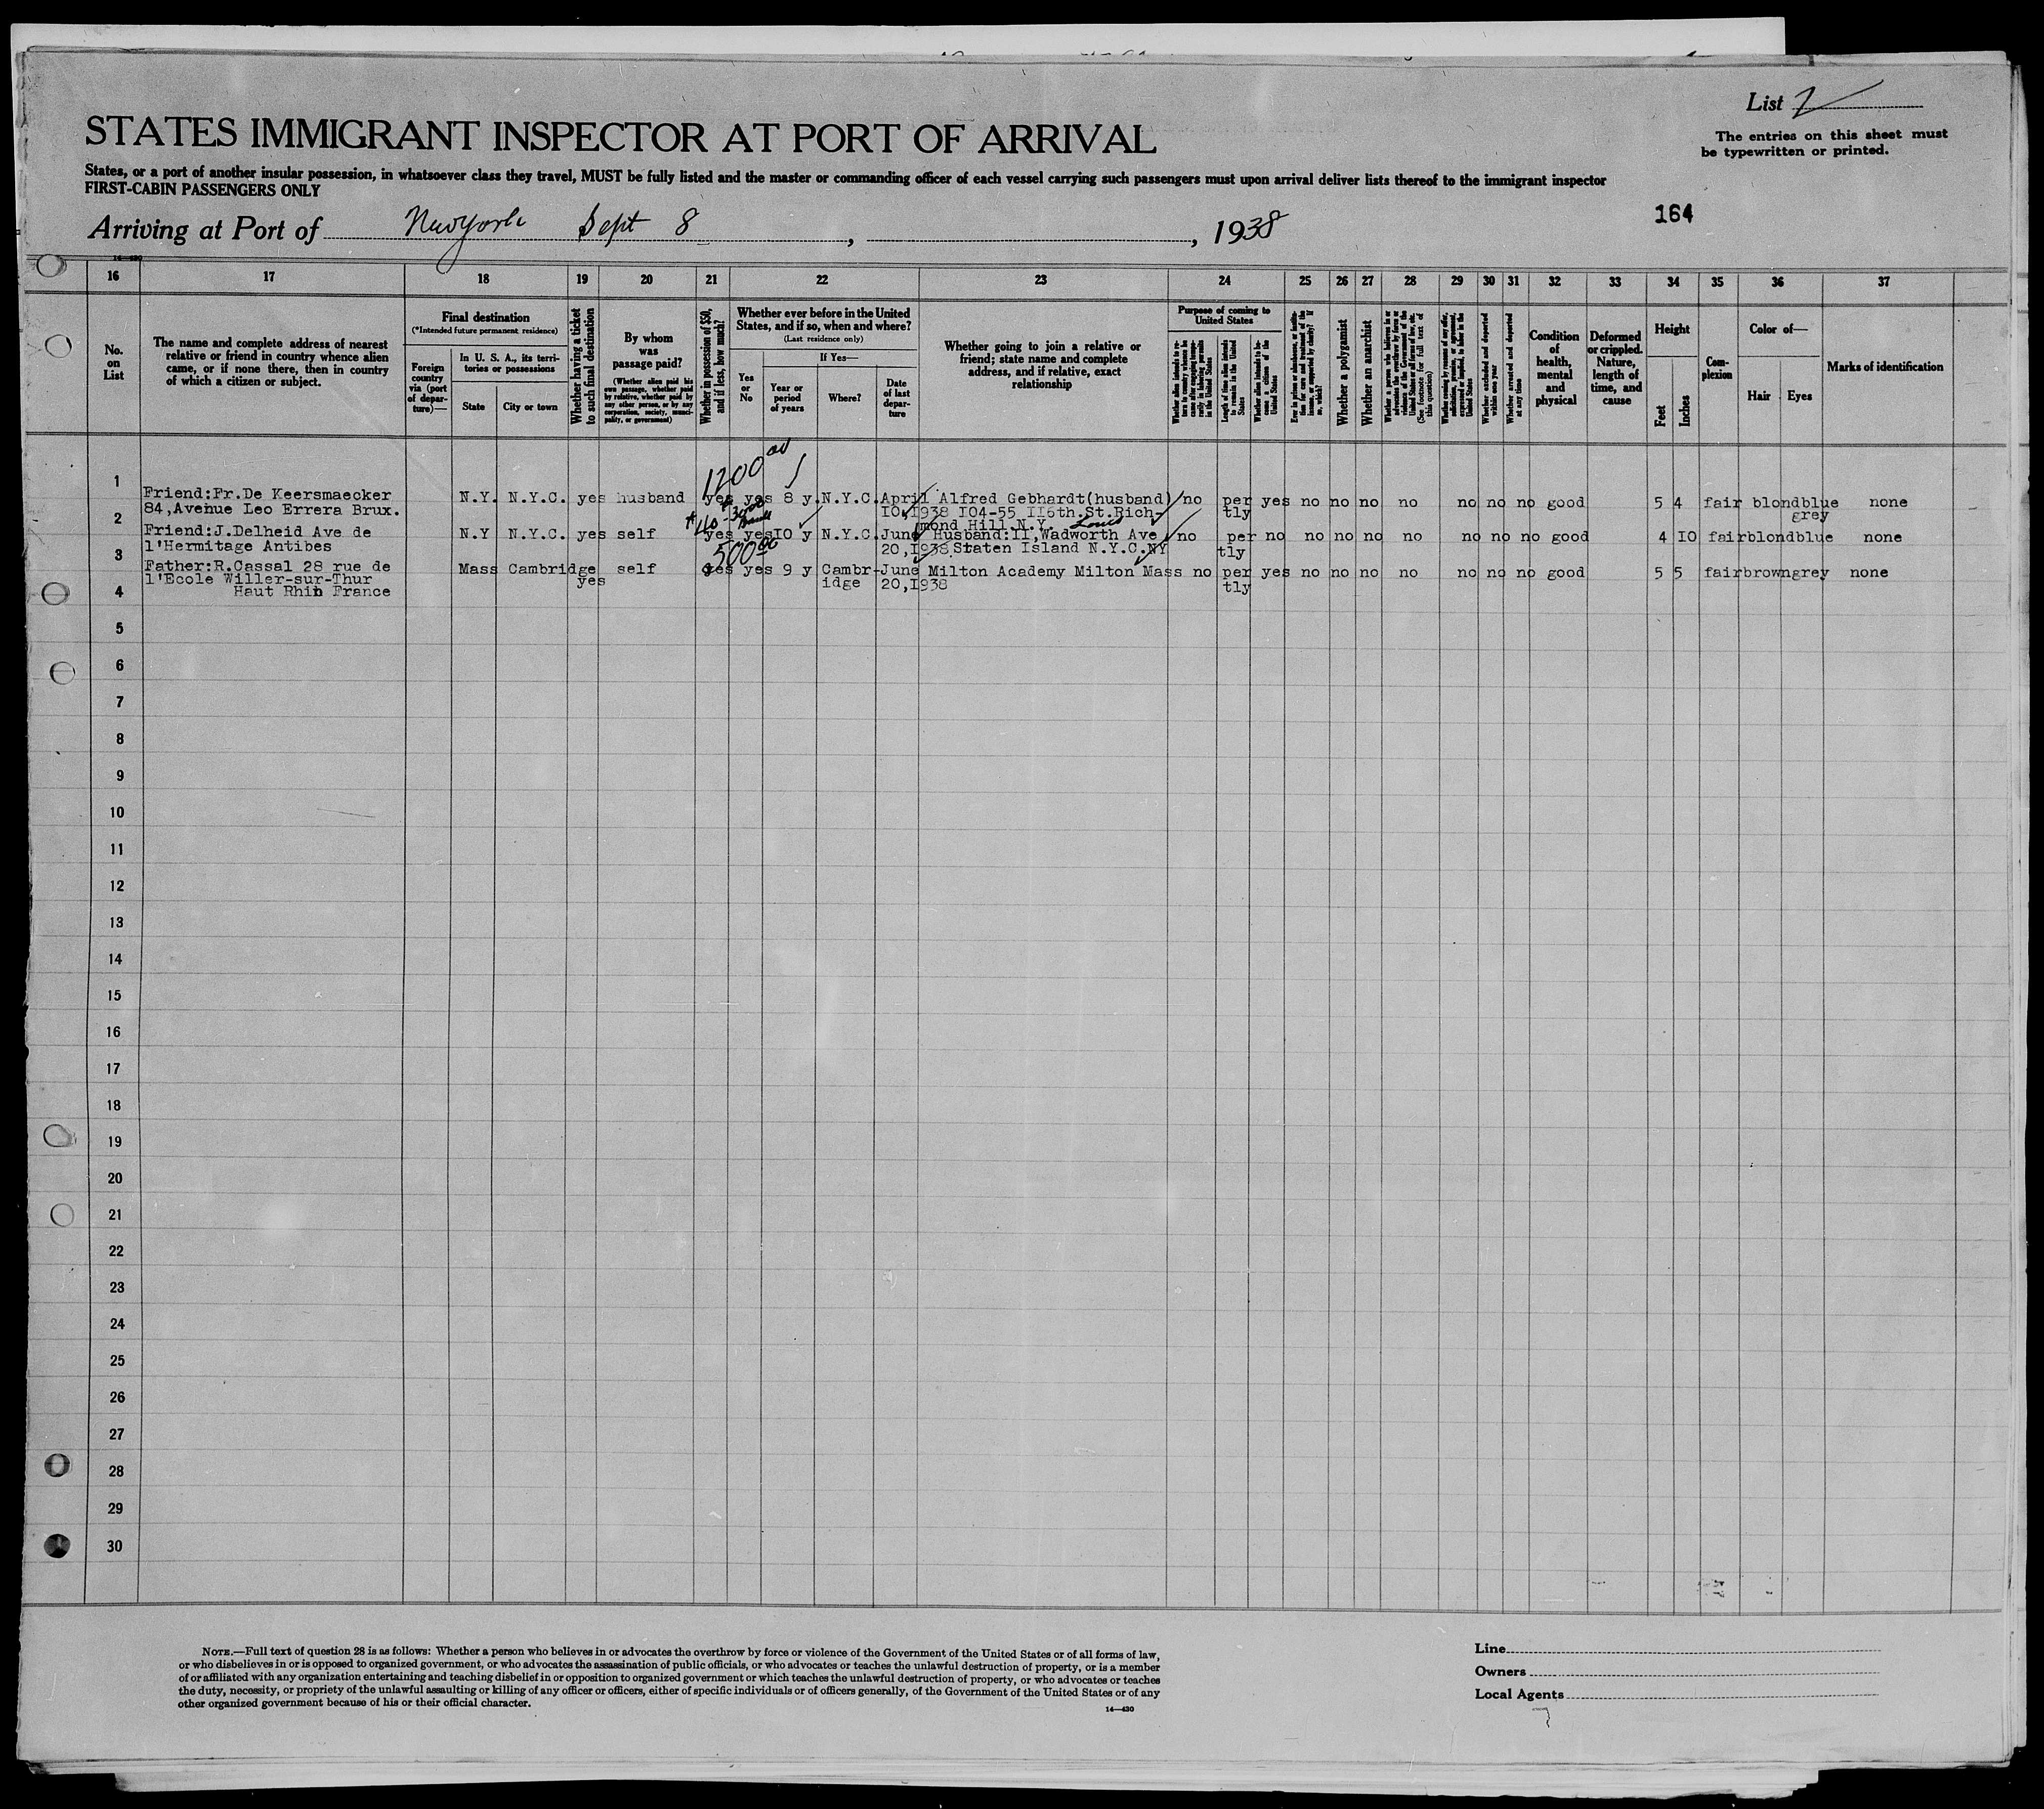 List 2
The entries on this sheet must
be typewritten or printed.
STATES IMMIGRANT INSPECTOR AT PORT OF ARRIVAL
States, or a port of another insular possession, in whatsoever class they travel, MUST be fully listed and the master or commanding officer of each vessel carrying such passengers must upon arrival deliver lists thereof to the immigrant inspector
FIRST-CABIN PASSENGERS ONLY
164
Arriving at Port of New York Sept 8, , 1938
14—430
16 17 18 19 20 21 22 23 24 25 26 27 28 29 30 31 32 33 34 35 36 37
No.
on
List
The name and complete address of nearest
relative or friend in country whence alien
came, or if none there, then in country
of which a citizen or subject.
Final destination
(*Intended future permanent residence)
Foreign
country
via (port
of depar-
ture)—
In U. S. A., its terri-
tories or possessions
State
City or town
Whether having a ticket
to such final destination
By whom
was
passage paid?
(Whether alien paid his
own passage, whether paid
by relative, whether paid by
any other person, or by any
corporation, society, munici-
pality, or government)
Whether in possession of $50,
and if less, how much?
Whether ever before in the United
States, and if so, when and where?
(Last residence only)
Yes
or
No
If Yes—
Year or
period
of years
Where?
Date
of last
depar-
ture
Whether going to join a relative or
friend; state name and complete
address, and if relative, exact
relationship
Purpose of coming to
United States
Whether alien intends to re-
turn to country whence he
came after engaging tempo-
rarily in laboring pursuits
in the United States
Length of time alien intends
to remain in the United
States
Whether alien intends to be-
come a citizen of the
United States
Ever in prison or almshouse, or institu-
tion for care and treatment of the
insane, or supported by charity? If
so, which?
Whether a polygamist
Whether an anarchist
Whether a person who believes in or
advocates the overthrow by force or
violence of the Government of the
United States or all forms of law, etc.
(See footnote for full text of
this question)
Whether coming by reason of any offer,
solicitation, promise, or agreement,
expressed or implied, to labor in the
United States
Whether excluded and deported
within one year
Whether arrested and deported
at any time
Condition
of
health,
mental
and
physical
Deformed
or crippled.
Nature,
length of
time, and
cause
Height
Feet
Inches
Com-
plexion
Color of—
Hair
Eyes
Marks of identification
1200 00
1 Friend:Fr.De Keersmaecker N.Y. N.Y.C. yes husband yes yes 8 y. N.Y.C. April Alfred Gebhardt(husband) no per yes no no no no no no no good 5 4 fair blond blue none
84,Avenue Leo Errera Brux. 10,1938 104-55 116th.St.Rich- tly grey
2 mond Hill.N.Y. Louis
Friend:J.Delheid Ave de N.Y N.Y.C. yes self yes yes 10 y N.Y.C. June Husband:11,Wadworth Ave no per no no no no no no no no good 4 10 fair blond blue none
l'Hermitage Antibes 500 00 20,1938 Staten Island N.Y.C.NY tly
3 Father:R.Cassal 28 rue de Mass Cambridge self yes yes 9 y Cambr- June Milton Academy Milton Mass no per yes no no no no no no no good 5 5 fair brown grey none
l'Ecole Willer-sur-Thur yes idge 20,1938 tly
4 Haut Rhin France
5
6
7
8
9
10
11
12
13
14
15
16
17
18
19
20
21
22
23
24
25
26
27
28
29
30
NOTE.—Full text of question 28 is as follows: Whether a person who believes in or advocates the overthrow by force or violence of the Government of the United States or of all forms of law,
or who disbelieves in or is opposed to organized government, or who advocates the assassination of public officials, or who advocates or teaches the unlawful destruction of property, or is a member
of or affiliated with any organization entertaining and teaching disbelief in or opposition to organized government or which teaches the unlawful destruction of property, or who advocates or teaches
the duty, necessity, or propriety of the unlawful assaulting or killing of any officer or officers, either of specific individuals or of officers generally, of the Government of the United States or of any
other organized government because of his or their official character.
14—430
Line
Owners
Local Agents